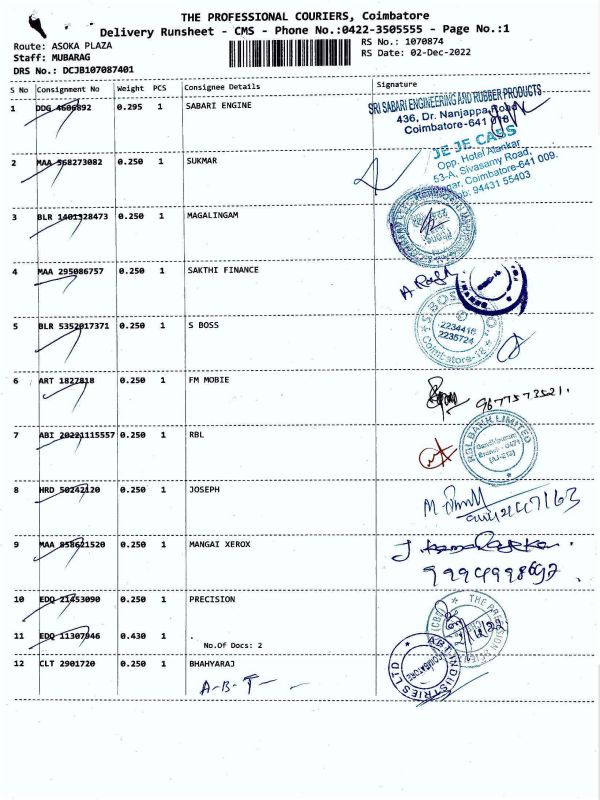 THE PROFESSIONAL COURIERS, Coimbatore
Delivery Runsheet - CMS - Phone No.:0422-3505555 - Page No.:1
Route: ASOKA PLAZA
Staff: MUBARAG
DRS No.: DCJB107087401
RS No.: 1070874
RS Date: 02-Dec-2022
S No Consignment No Weight PCS Consignee Details Signature
1 DDG 4606892 0.295 1 SABARI ENGINE
SRI SABARI ENGINEERING AND RUBBER PRODUCTS
436, Dr. Nanjappa Road
Coimbatore-641 018
2 MAA 568273082 0.250 1 SUKMAR
JE JE CASS
Opp. Hotel Alankar
53-A, Sivasamy Road,
Coimbatore-641 009.
94431 55403
3 BLR 1401328473 0.250 1 MAGALINGAM
4 MAA 295086757 0.250 1 SAKTHI FINANCE
5 BLR 5352017371 0.250 1 S BOSS
2234416
2235724
Coimbatore-18
6 ART 1827818 0.250 1 FM MOBIE
9677573521.
7 ABI 20221115557 0.250 1 RBL
RBL BANK LIMITED
8 HRD 50242120 0.250 1 JOSEPH
9 MAA 858621520 0.250 1 MANGAI XEROX
10 EDQ 21453090 0.250 1 PRECISION
THE PRECISION SCIEN
11 EDQ 11307946 0.430 1 .
No.Of Docs: 2
12 CLT 2901720 0.250 1 BHAHYARAJ
A-B-T-
ABT INDUSTRIES LTD
COIMBATORE